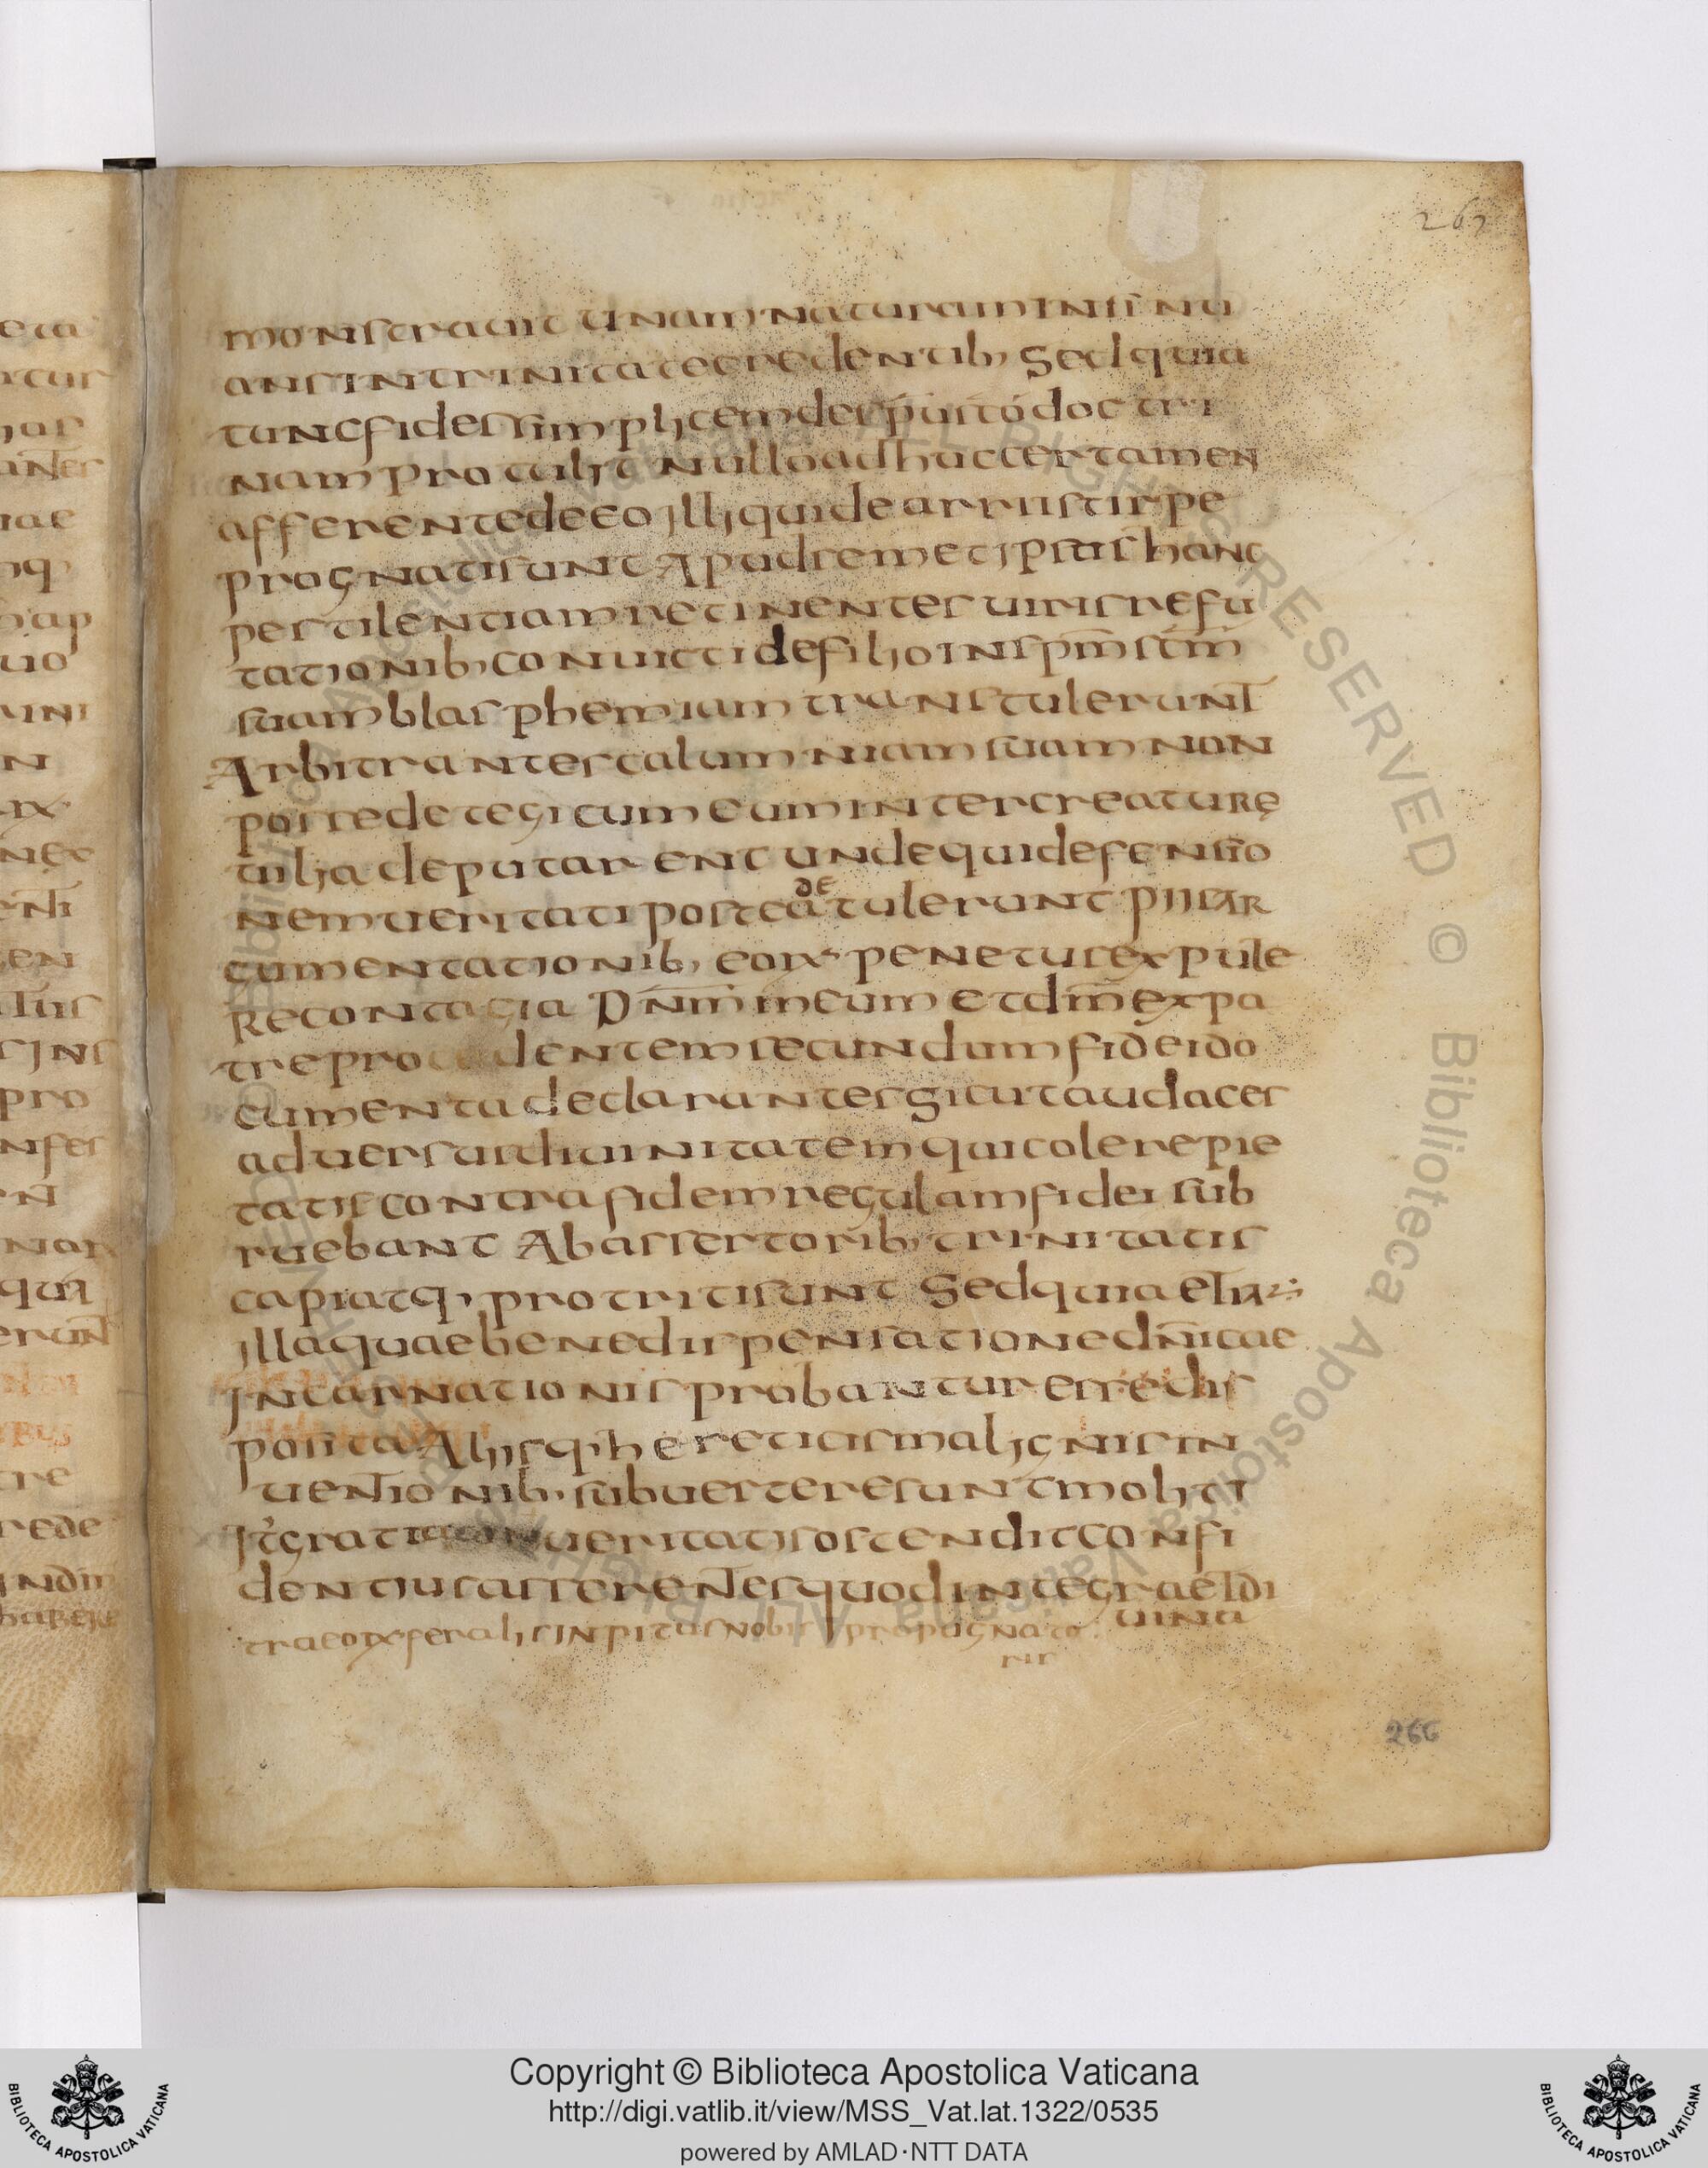 262
monstrauit unam naturam insinu
ans in trinitate credentib, Sed quia
tunc fidei simplicem de sp̄u sc̄o doctri
nam protulit nullo adhuc certamen
afferente de eo illi qui de arrii stirpe
prognati sunt Apud semet ipsus hanc
pestilentiam retinentes uiris refu
tationib, conuicti de filio in sp̄m sc̄m
suam blasphemiam transtulerunt
Arbitrantes calumniam suam non
posse detegi cum eum inter creaturę
uilia deputarent unde qui defensio
nem ueritati postea detulerunt piis ar
cumentationib, eorum penetus expule
Re contagia Dn̄m meum et dm̄ ex pa
tre procedentem secundum fidei do
cumenta declarantes sicut audaces
aduersus diuinitatem qui colere pie
tatis contra fidem regulam fidei sub
ruebant Ab assertorib, trinitatis
capiatq, protriti sunt Sed quia etiam
illa quae bene dispensatione dn̄icae
incarnationis probantur esse dis
posita Aliisq, hereticis malignis in
uentionib, subuertere sunt moliti
ueritatis ostendit confi
dentius asserentes quod integra et di
uina
trae eorum feralis inpitas nobis propugnato
ris
266
Copyright © Biblioteca Apostolica Vaticana
http://digi.vatlib.it/view/MSS_Vat.lat.1322/0535
powered by AMLAD·NTT DATA